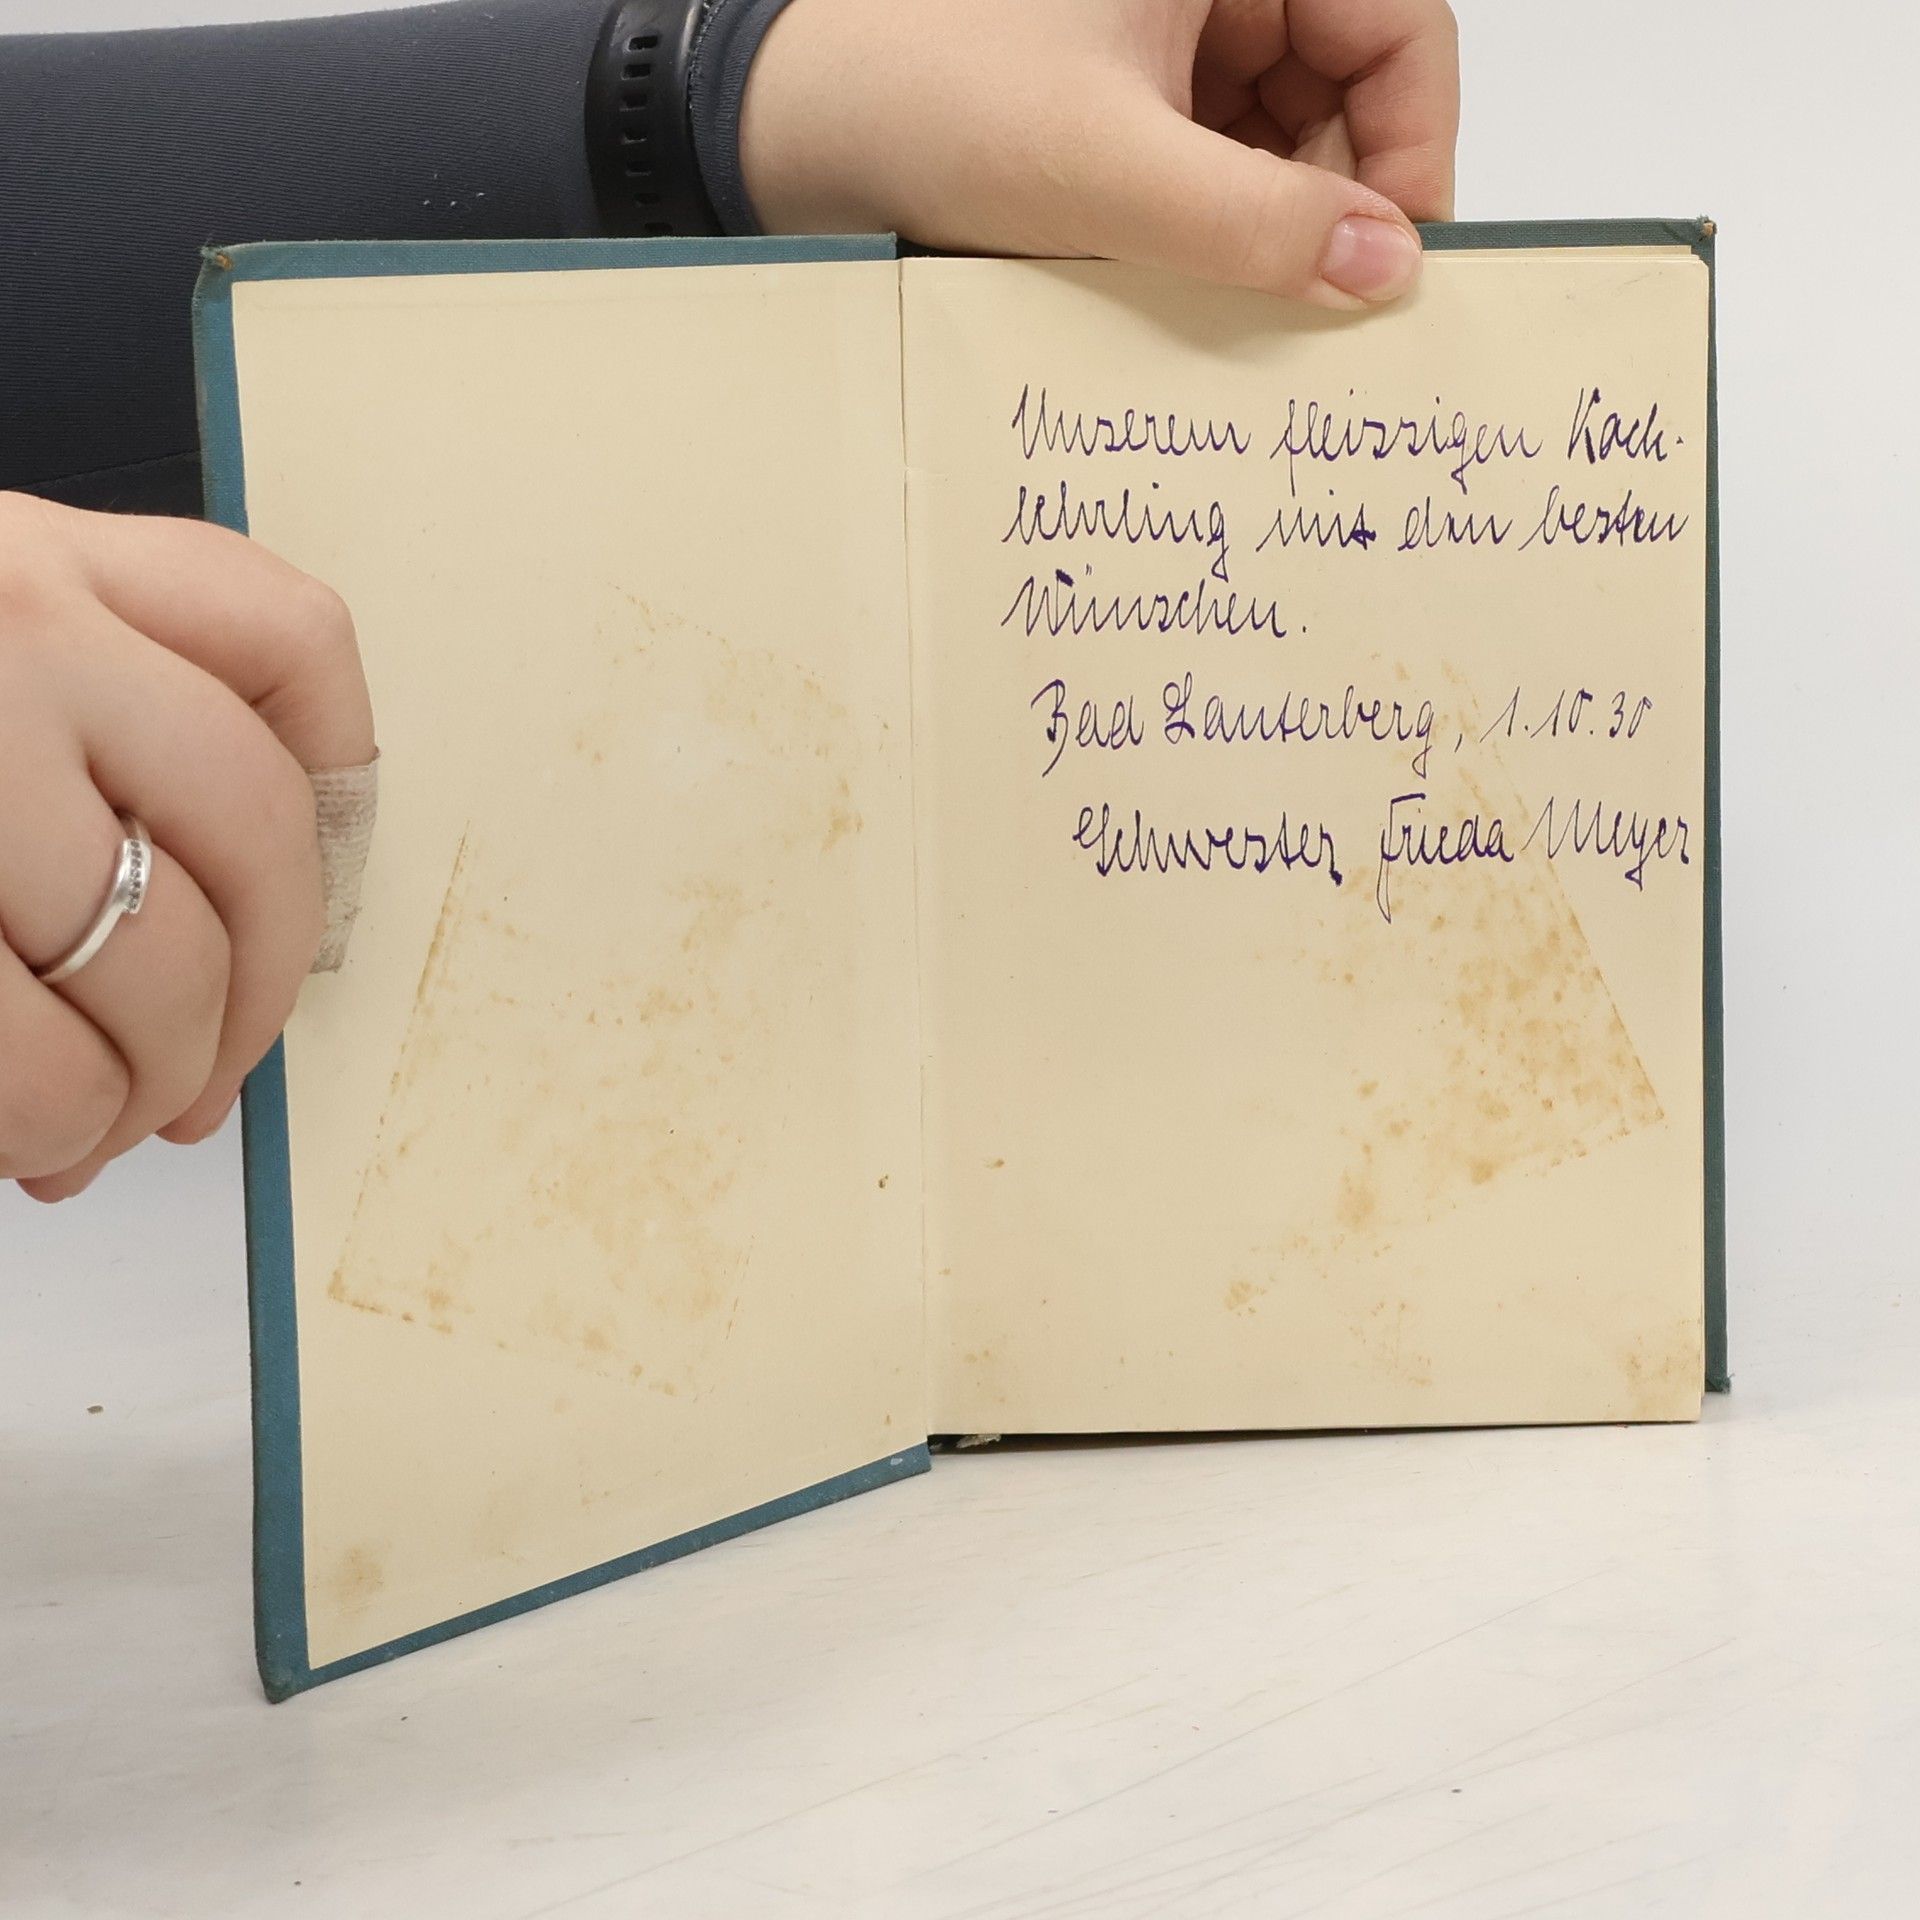 Unserem fleissigen Koch-
lehrling mit den besten
Wünschen.
Bad Lauterberg, 1.10.30
Schwester Frieda Meyer